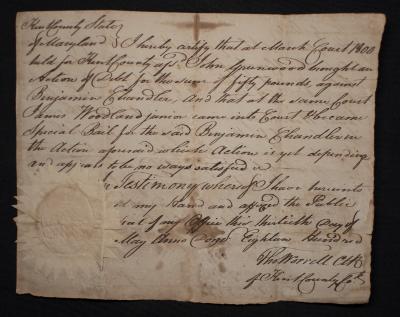 Kent County State
of Maryland } I hereby certify that at March Court 1800
held for Kent County afsd. John Greenwood brought an
Action of Debt for the sum of fifty pounds, against
Benjamin Chandler, And that at the same Court
James Woodland junior came into Court & became
Special Bail for the said Benjamin Chandler in
the Action aforesaid which Action is yet depending
and appears to be no ways satisfied
In Testimony whereof I have hereunto
set my Hand and affixed the Public
Seal of my Office this thirtieth Day of
May Anno Domi Eighteen Hundred
Tho Worrell Clk
of Kent County Ct.